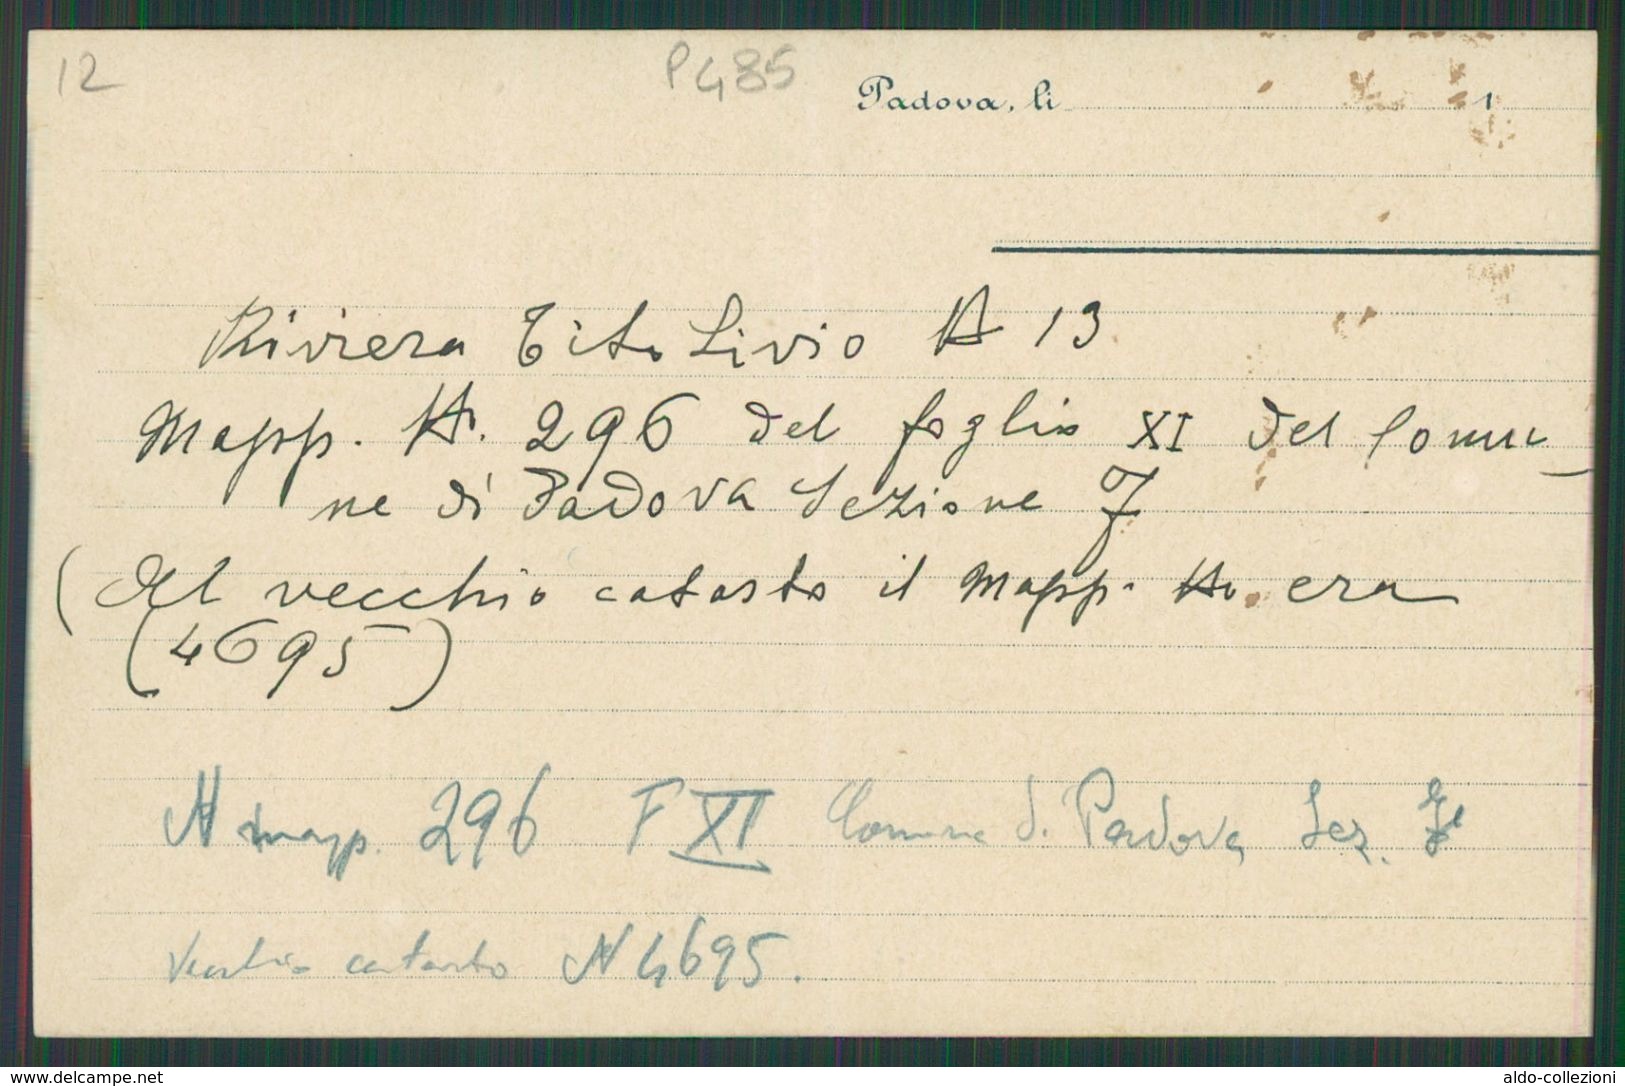 12
P485
Padova, li 1
Riviera Tito Livio N 13
Mapp. N. 296 del foglio XI del Comu-
ne di Padova Sezione F
(Al vecchio catasto il Mapp. No. era
(4695)
N mapp. 296 F XI Comune di Padova Sez. F
Vecchio catasto N 4695.
www.delcampe.net
aldo-collezioni